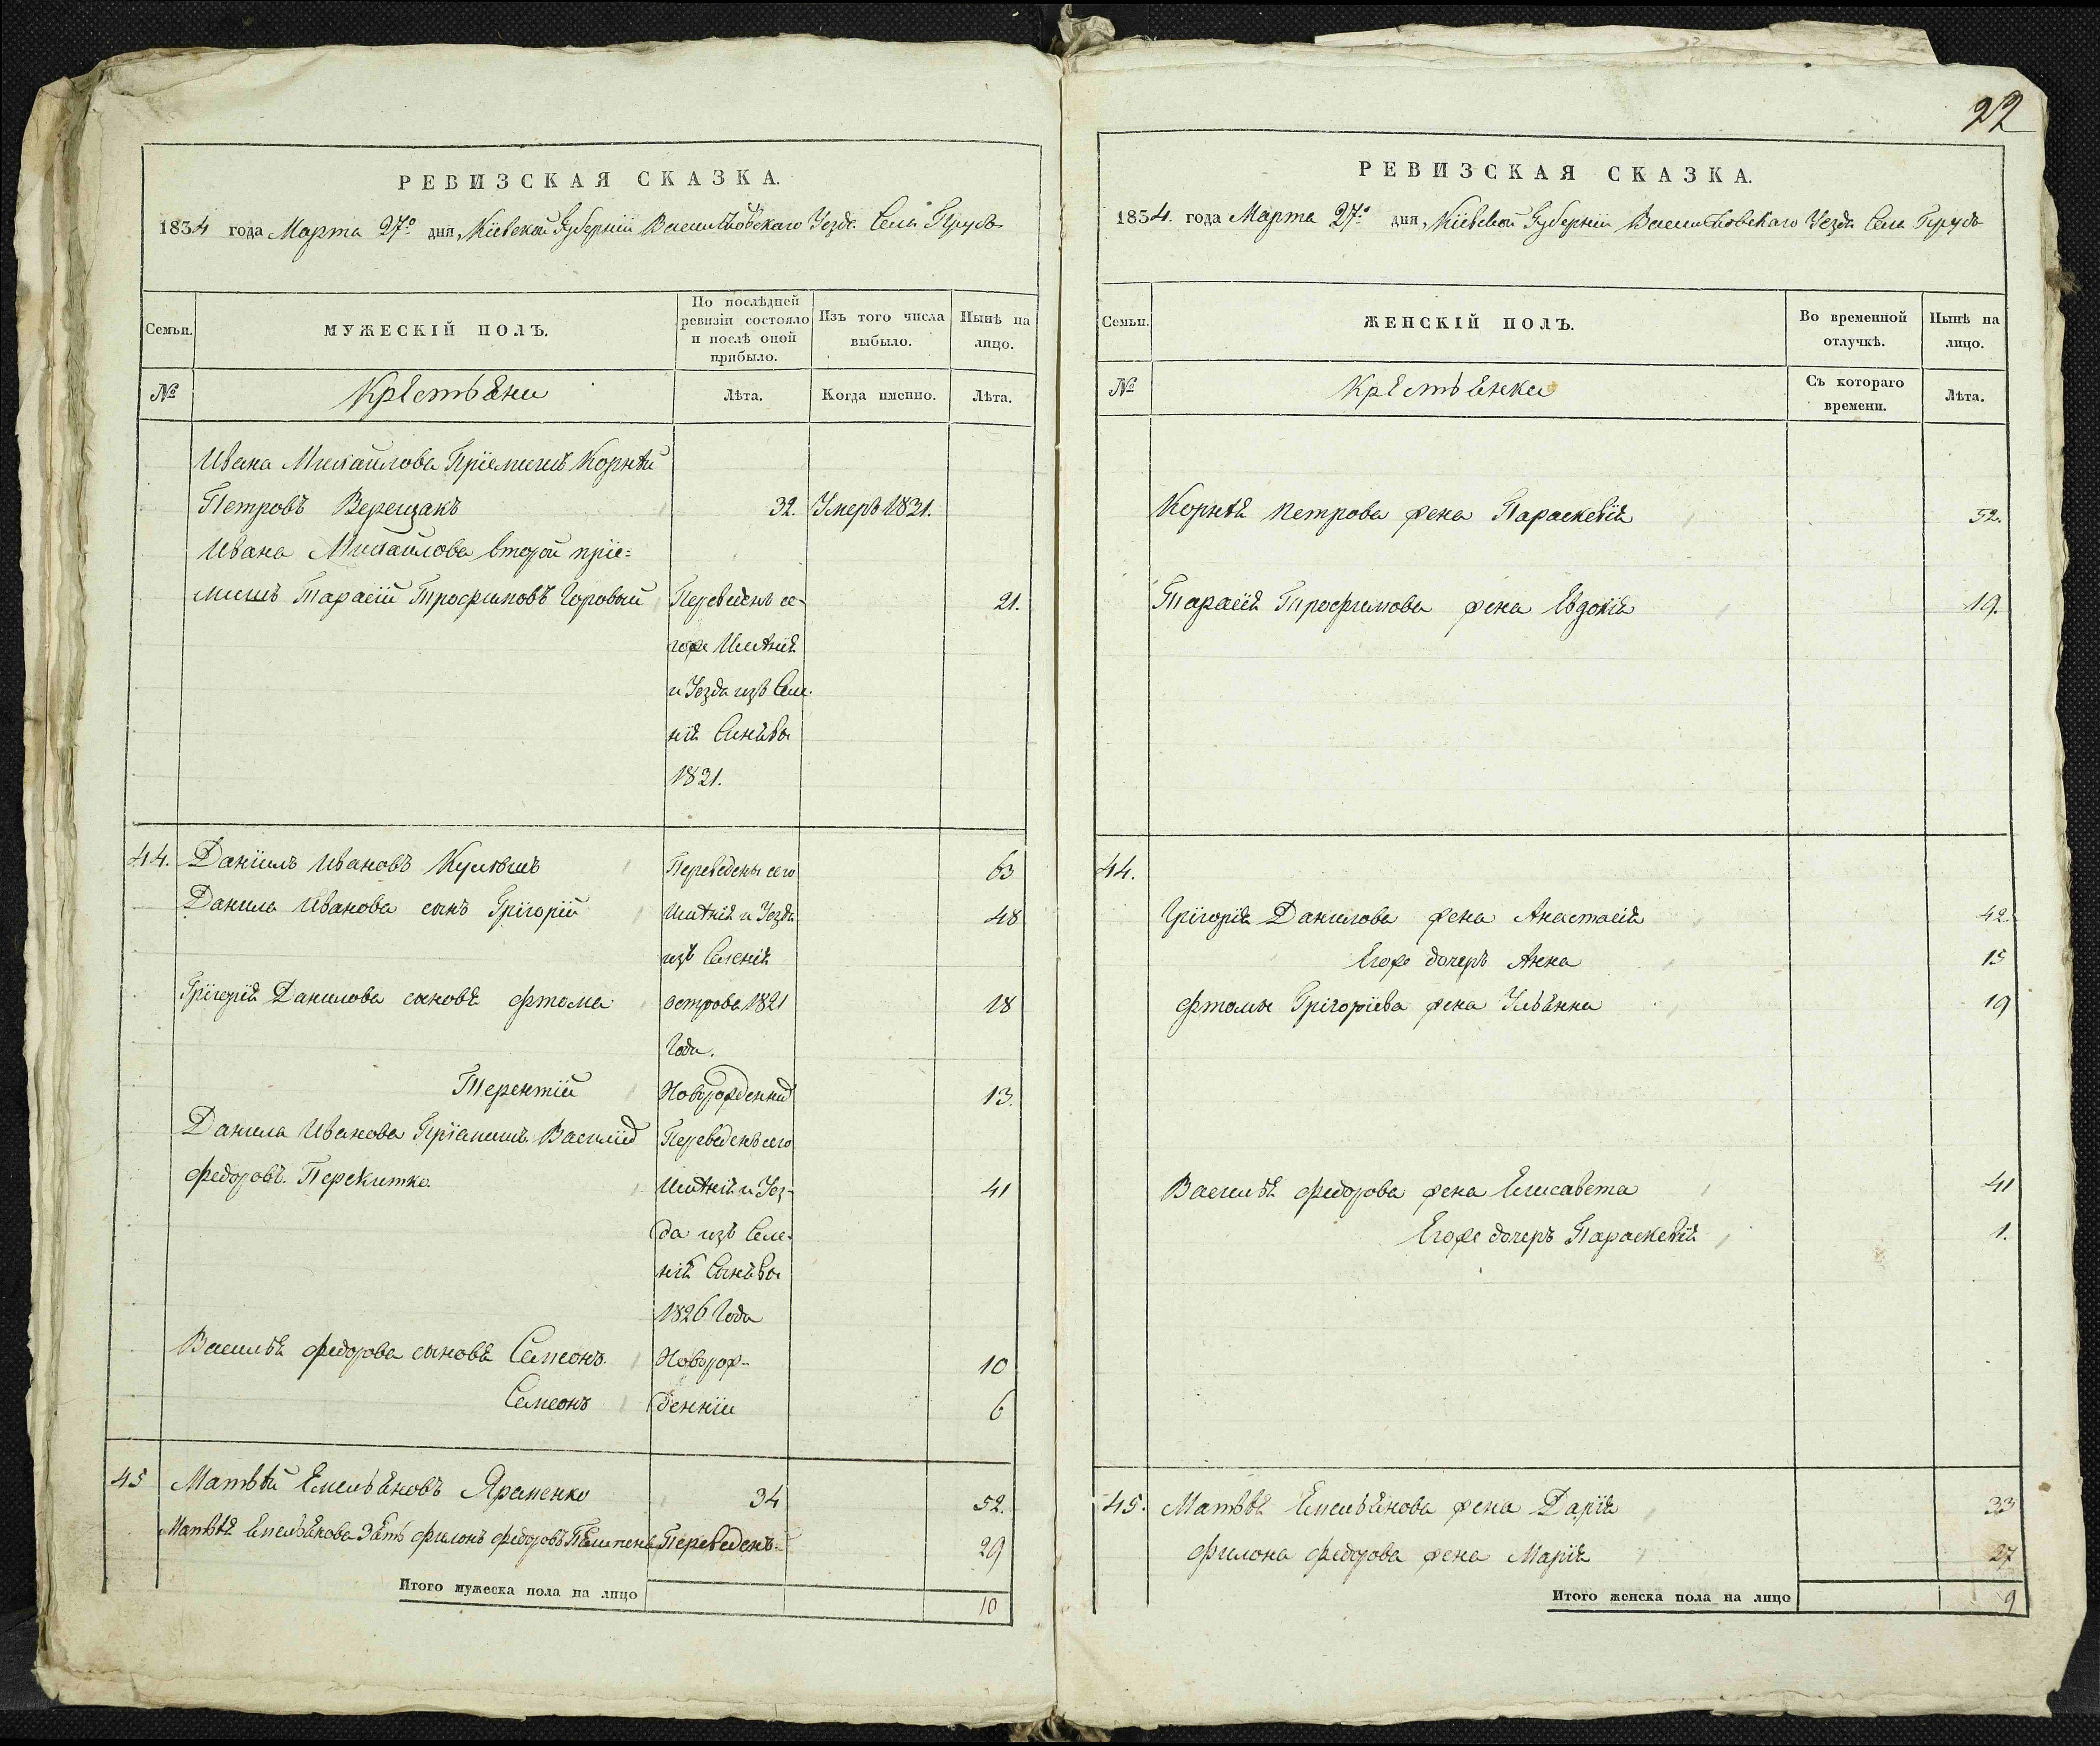 РЕВИЗСКАЯ СКАЗКА.
1834 года Марта 27го дня, Кіевской Губерніи Васильковскаго Уезда Села Прусъ
Семьи.
МУЖЕСКІЙ ПОЛЪ.
По послѣдней ревизіи состояло и послѣ оной прибыло.
Изъ того числа выбыло.
Нынѣ на лицо.
№
Крестьяни
Лѣта.
Когда именно.
Лѣта.
Ивана Михайлова Пріемишъ Корнѣй
Петровъ Верещакъ 32. Умеръ 1831.
Ивана Михайлова второй пріе=
мишъ Тарасій Трофимовъ Горовый Переведенъ се- 21.
гоже Имѣнія
и Уезда изъ Селе-
нія Синѣва
1821.
44. Даніилъ Ивановъ Кулѣшъ Переведены сего 63
Данила Иванова сынъ Григорій Имѣнія и Уезда 48
изъ Селенія
Григорія Данилова сыновя Фтома острова 1821 18
Года.
Терентій Новорожденній 13.
Данила Иванова Пріимишъ Василій Переведенъ сего
Федоровъ Перекитка. Имѣнія и Уез- 41
да изъ Селе-
нія Синѣва
1826 Года
Василья Федорова сыновя Семеонъ. Новорож- 10
Семеонъ денніи 6
45 Матвѣй Емельяновъ Яременко 34 52.
Матвѣя Емельянова Зять Филонъ Федоровъ Переведенъ 29
Итого мужеска пола на лицо 10
22
РЕВИЗСКАЯ СКАЗКА.
1834. года Марта 27го дня, Кіевской Губерніи Васильковскаго Уезда Села Прусъ
Семьи.
ЖЕНСКІЙ ПОЛЪ.
Во временной отлучкѣ.
Нынѣ на лицо.
№
Крестьянки
Съ котораго времени.
Лѣта.
Корнѣя Петрова жена Параскевія 52.
Тарасія Трофимова жена Евдокія 19.
44.
Григорія Данилова жена Анастасія 42.
Егоже дочерь Анна 15
Фтомы Григоріева жена Ульянна 19
Василья Федорова жена Елисавета 41
Егоже дочерь Параскевія 1.
45. Матвѣя Емельянова жена Дарія 33
Филона Федорова жена Марія 27
Итого женска пола на лицо 9